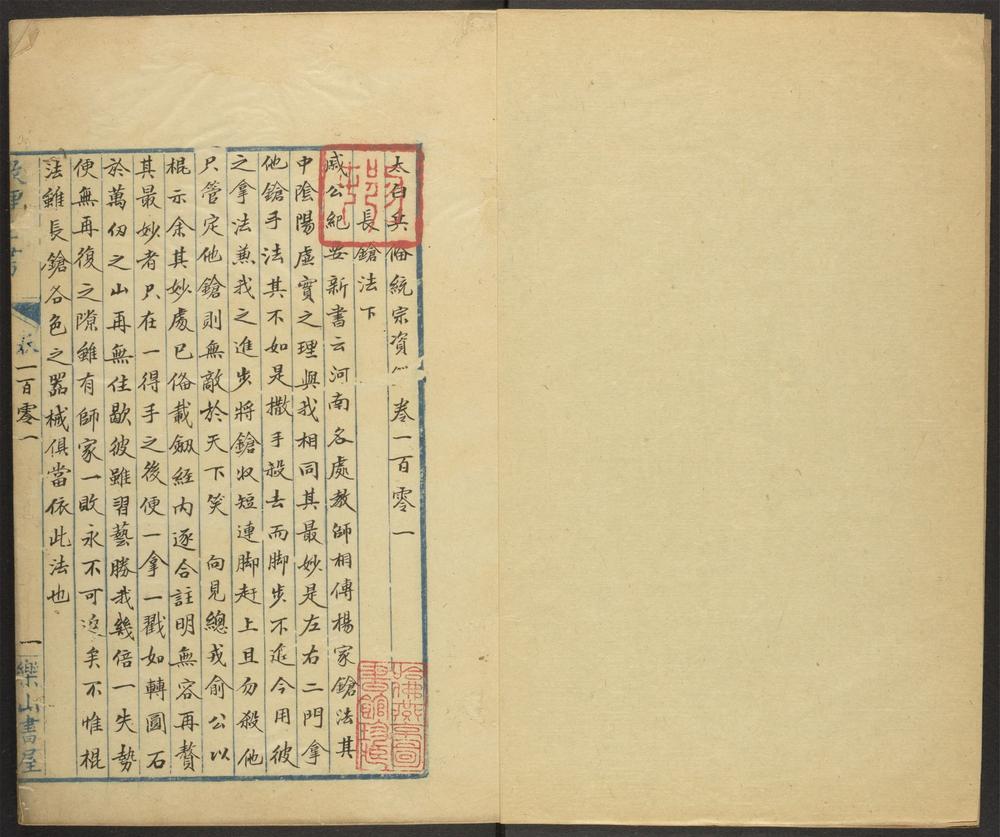 太白兵俻統宗資 卷一百零一
長鎗法下
戚公紀要新書云河南名處教師相傳楊家鎗法其
中陰陽虛實之理與我相同其最妙是左右二門拿
他鎗手法其不如是撒手殺去而脚步不進今用彼
之拿法兼我之進步將鎗收短連脚赶上且勿殺他
只管定他鎗則無敵於天下笑 向見總戎俞公以
棍示余其妙處已俻載劔經内逐合註明無容再贅
其最妙者只在一得手之後便一拿一戳如轉圓石
於萬仞之山再無住歇彼雖習藝勝我幾倍一失勢
便無再復之隙雖有師家一敗永不可返矣不惟棍
法雖長鎗各色之噐械俱當依此法也
卷一百零一
一
樂山書屋
哈佛燕京圖書館珍印